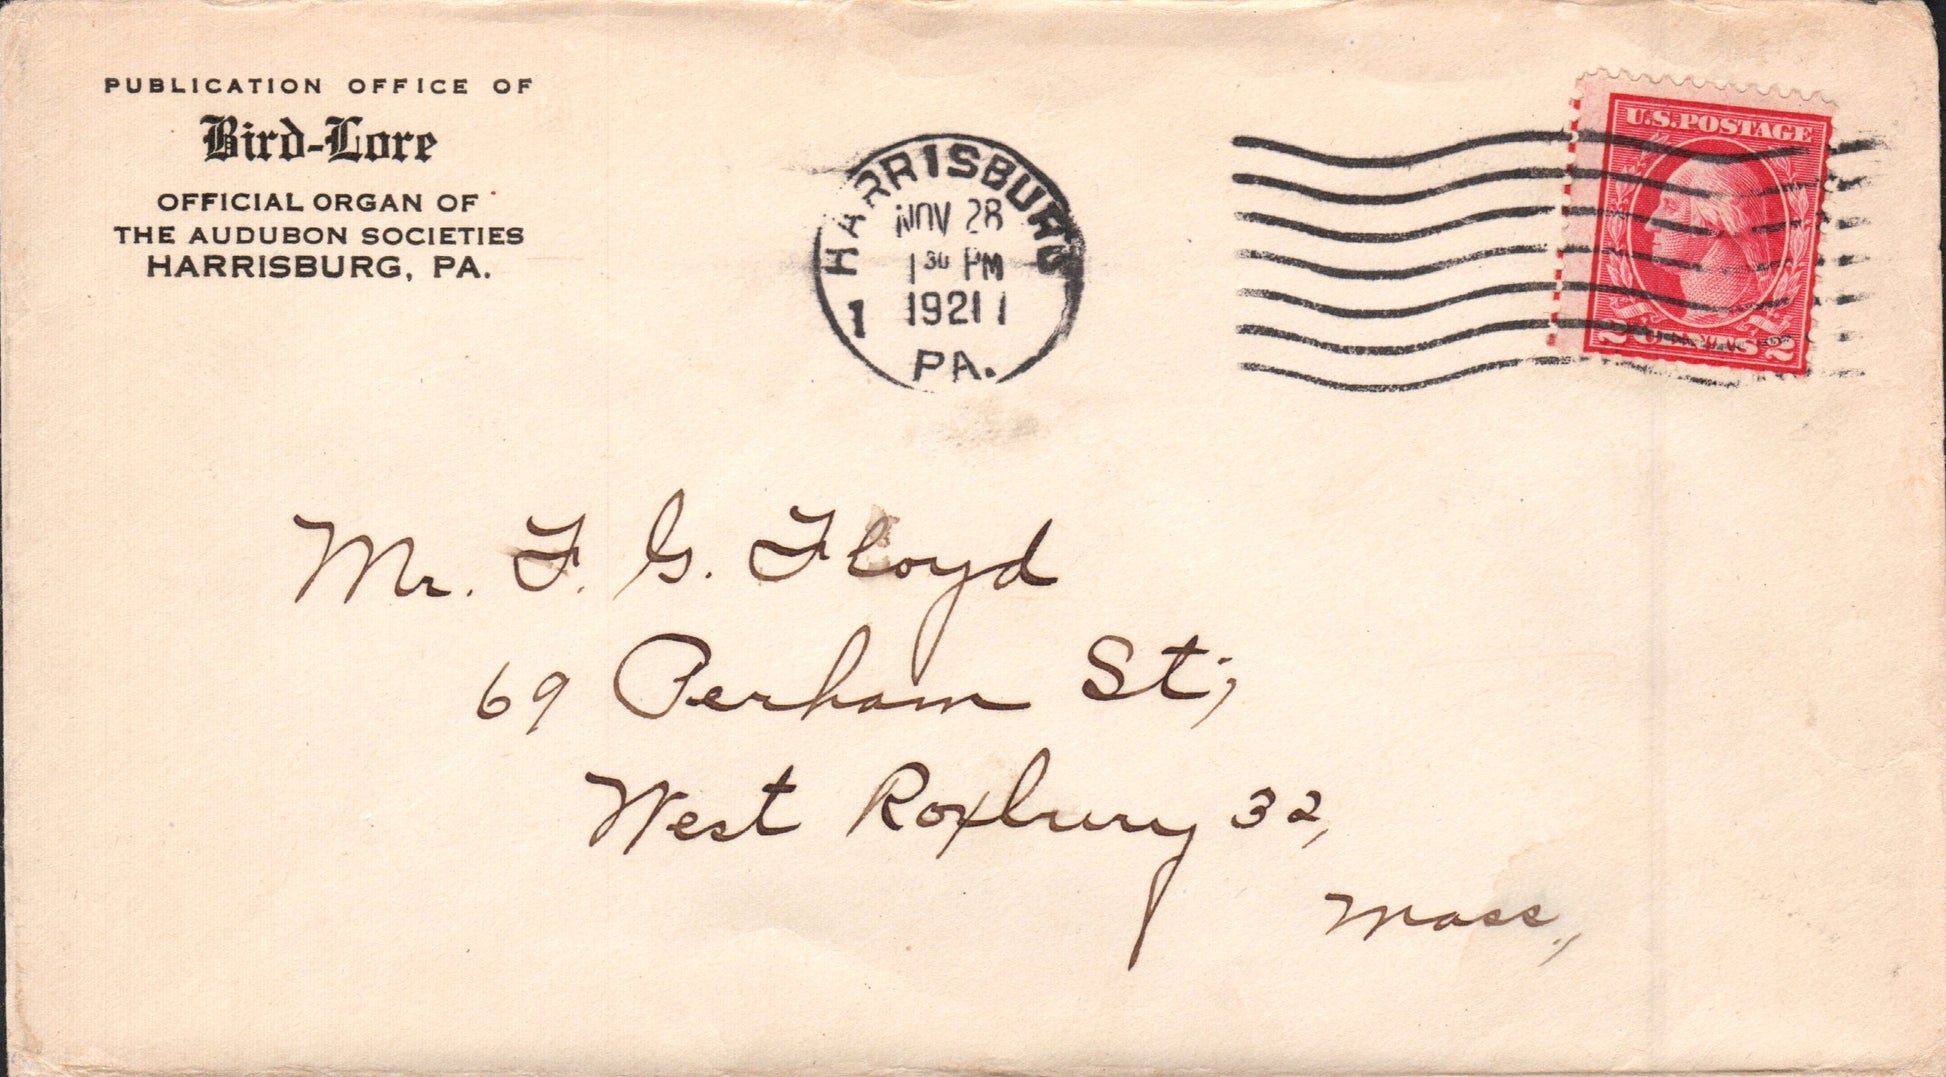 PUBLICATION OFFICE OF
Bird-Lore
OFFICIAL ORGAN OF
THE AUDUBON SOCIETIES
HARRISBURG, PA.
HARRISBURG
NOV 28
1 30 PM
1921
1
PA.
U.S. POSTAGE
2 CENTS 2
Mr. F. G. Floyd
69 Perham St.,
West Roxbury 32,
Mass.,